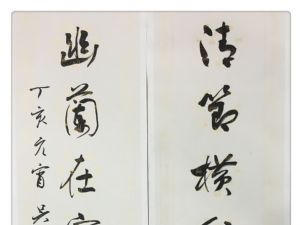 清節橫
幽蘭在
丁亥元宵吳